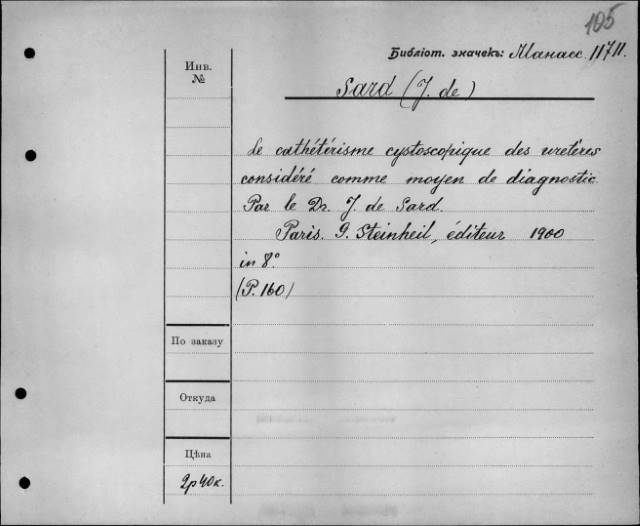 105
Библіот. значекъ: Манасс. 11711.
Инв.
№
Sard (J. de)
Le cathétérisme cystoscopique des uretères
considéré comme moyen de diagnostic.
Par le Dr. J. de Sard.
Paris. G. Steinheil, éditeur 1900
in 8°
(P. 160)
По заказу
Откуда
Цѣна
2р 40к.